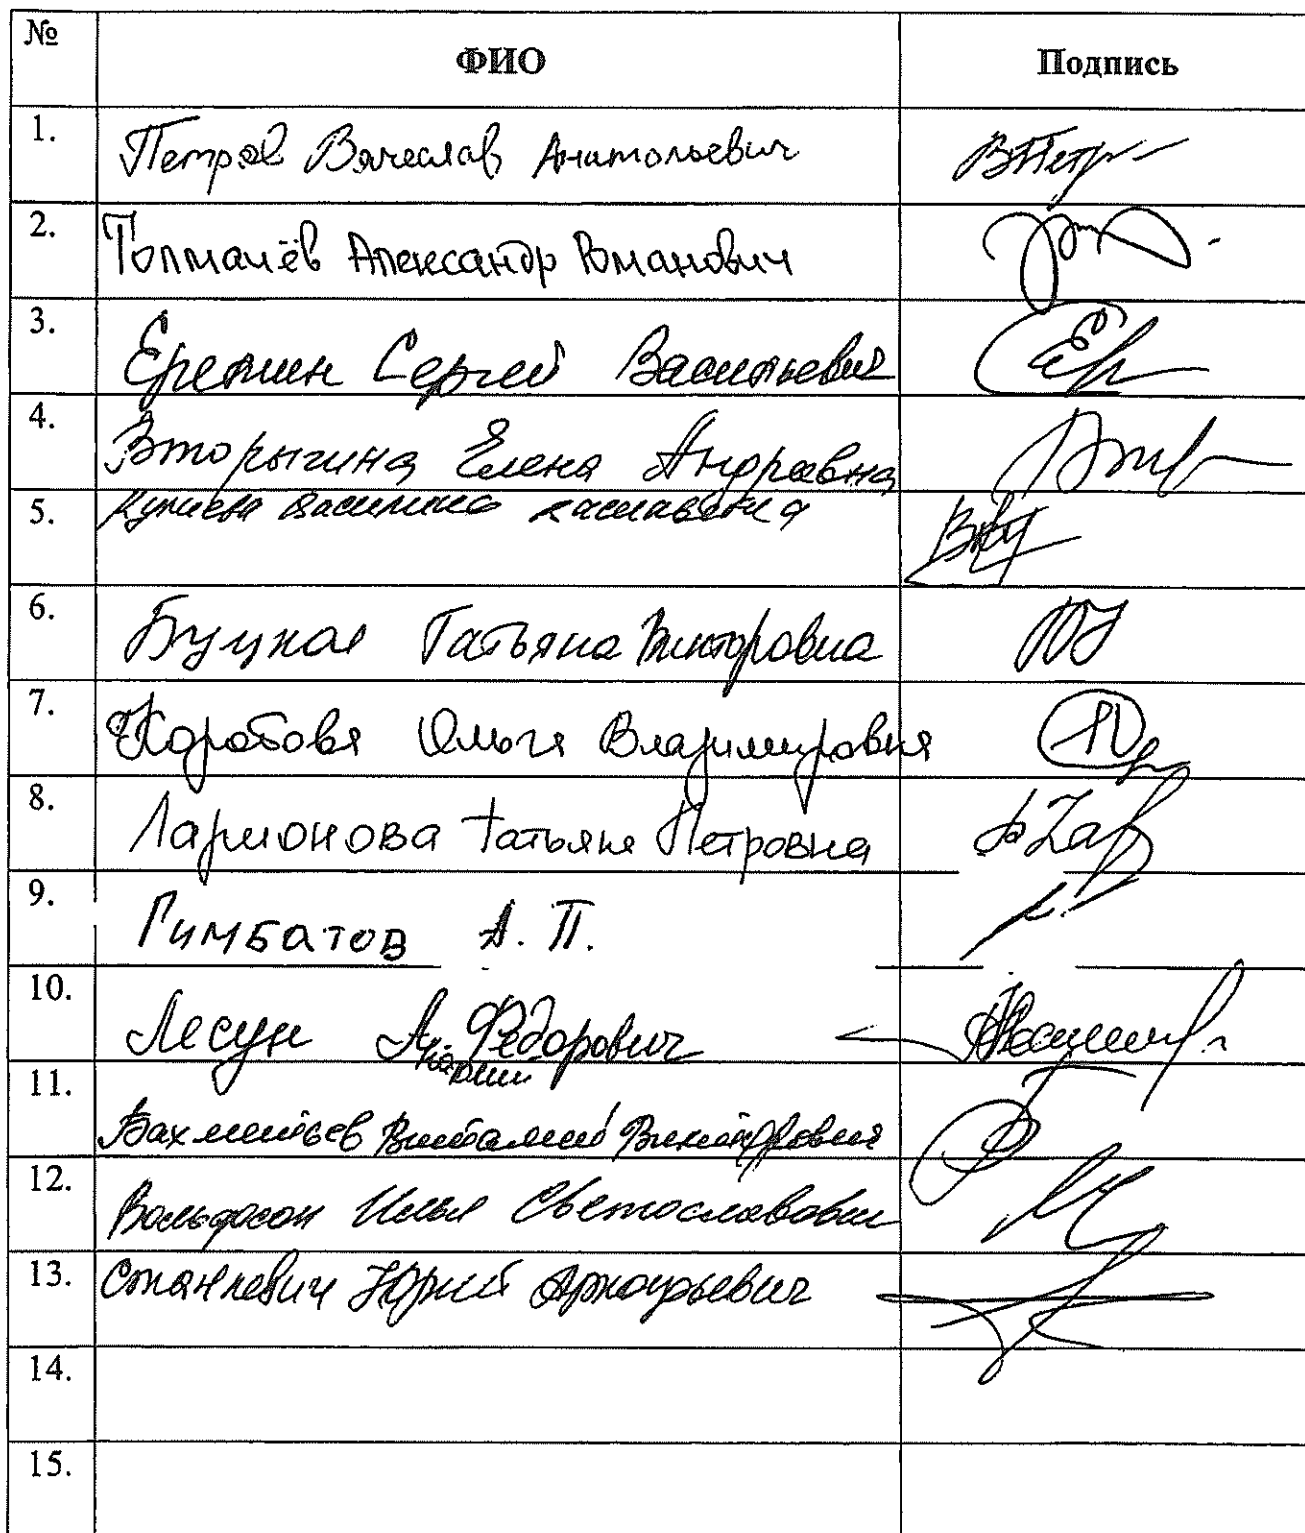 № ФИО Подпись
1. Петров Вячеслав Анатольевич
2. Толмачёв Александр Романович
3. Еремин Сергей Васильевич
4. Вторыгина Елена Андреевна
5.
6. Буцкая Татьяна Викторовна
7. Коробова Ольга Владимировна
8. Ларионова Татьяна Петровна
9. Гимбатов А. П.
10. Лесун А. Фёдорович
11. Бахметьев Виталий Викторович
12. Вольфсон Илья Светославович
13. Станкевич Юрий Аркадьевич
14.
15.